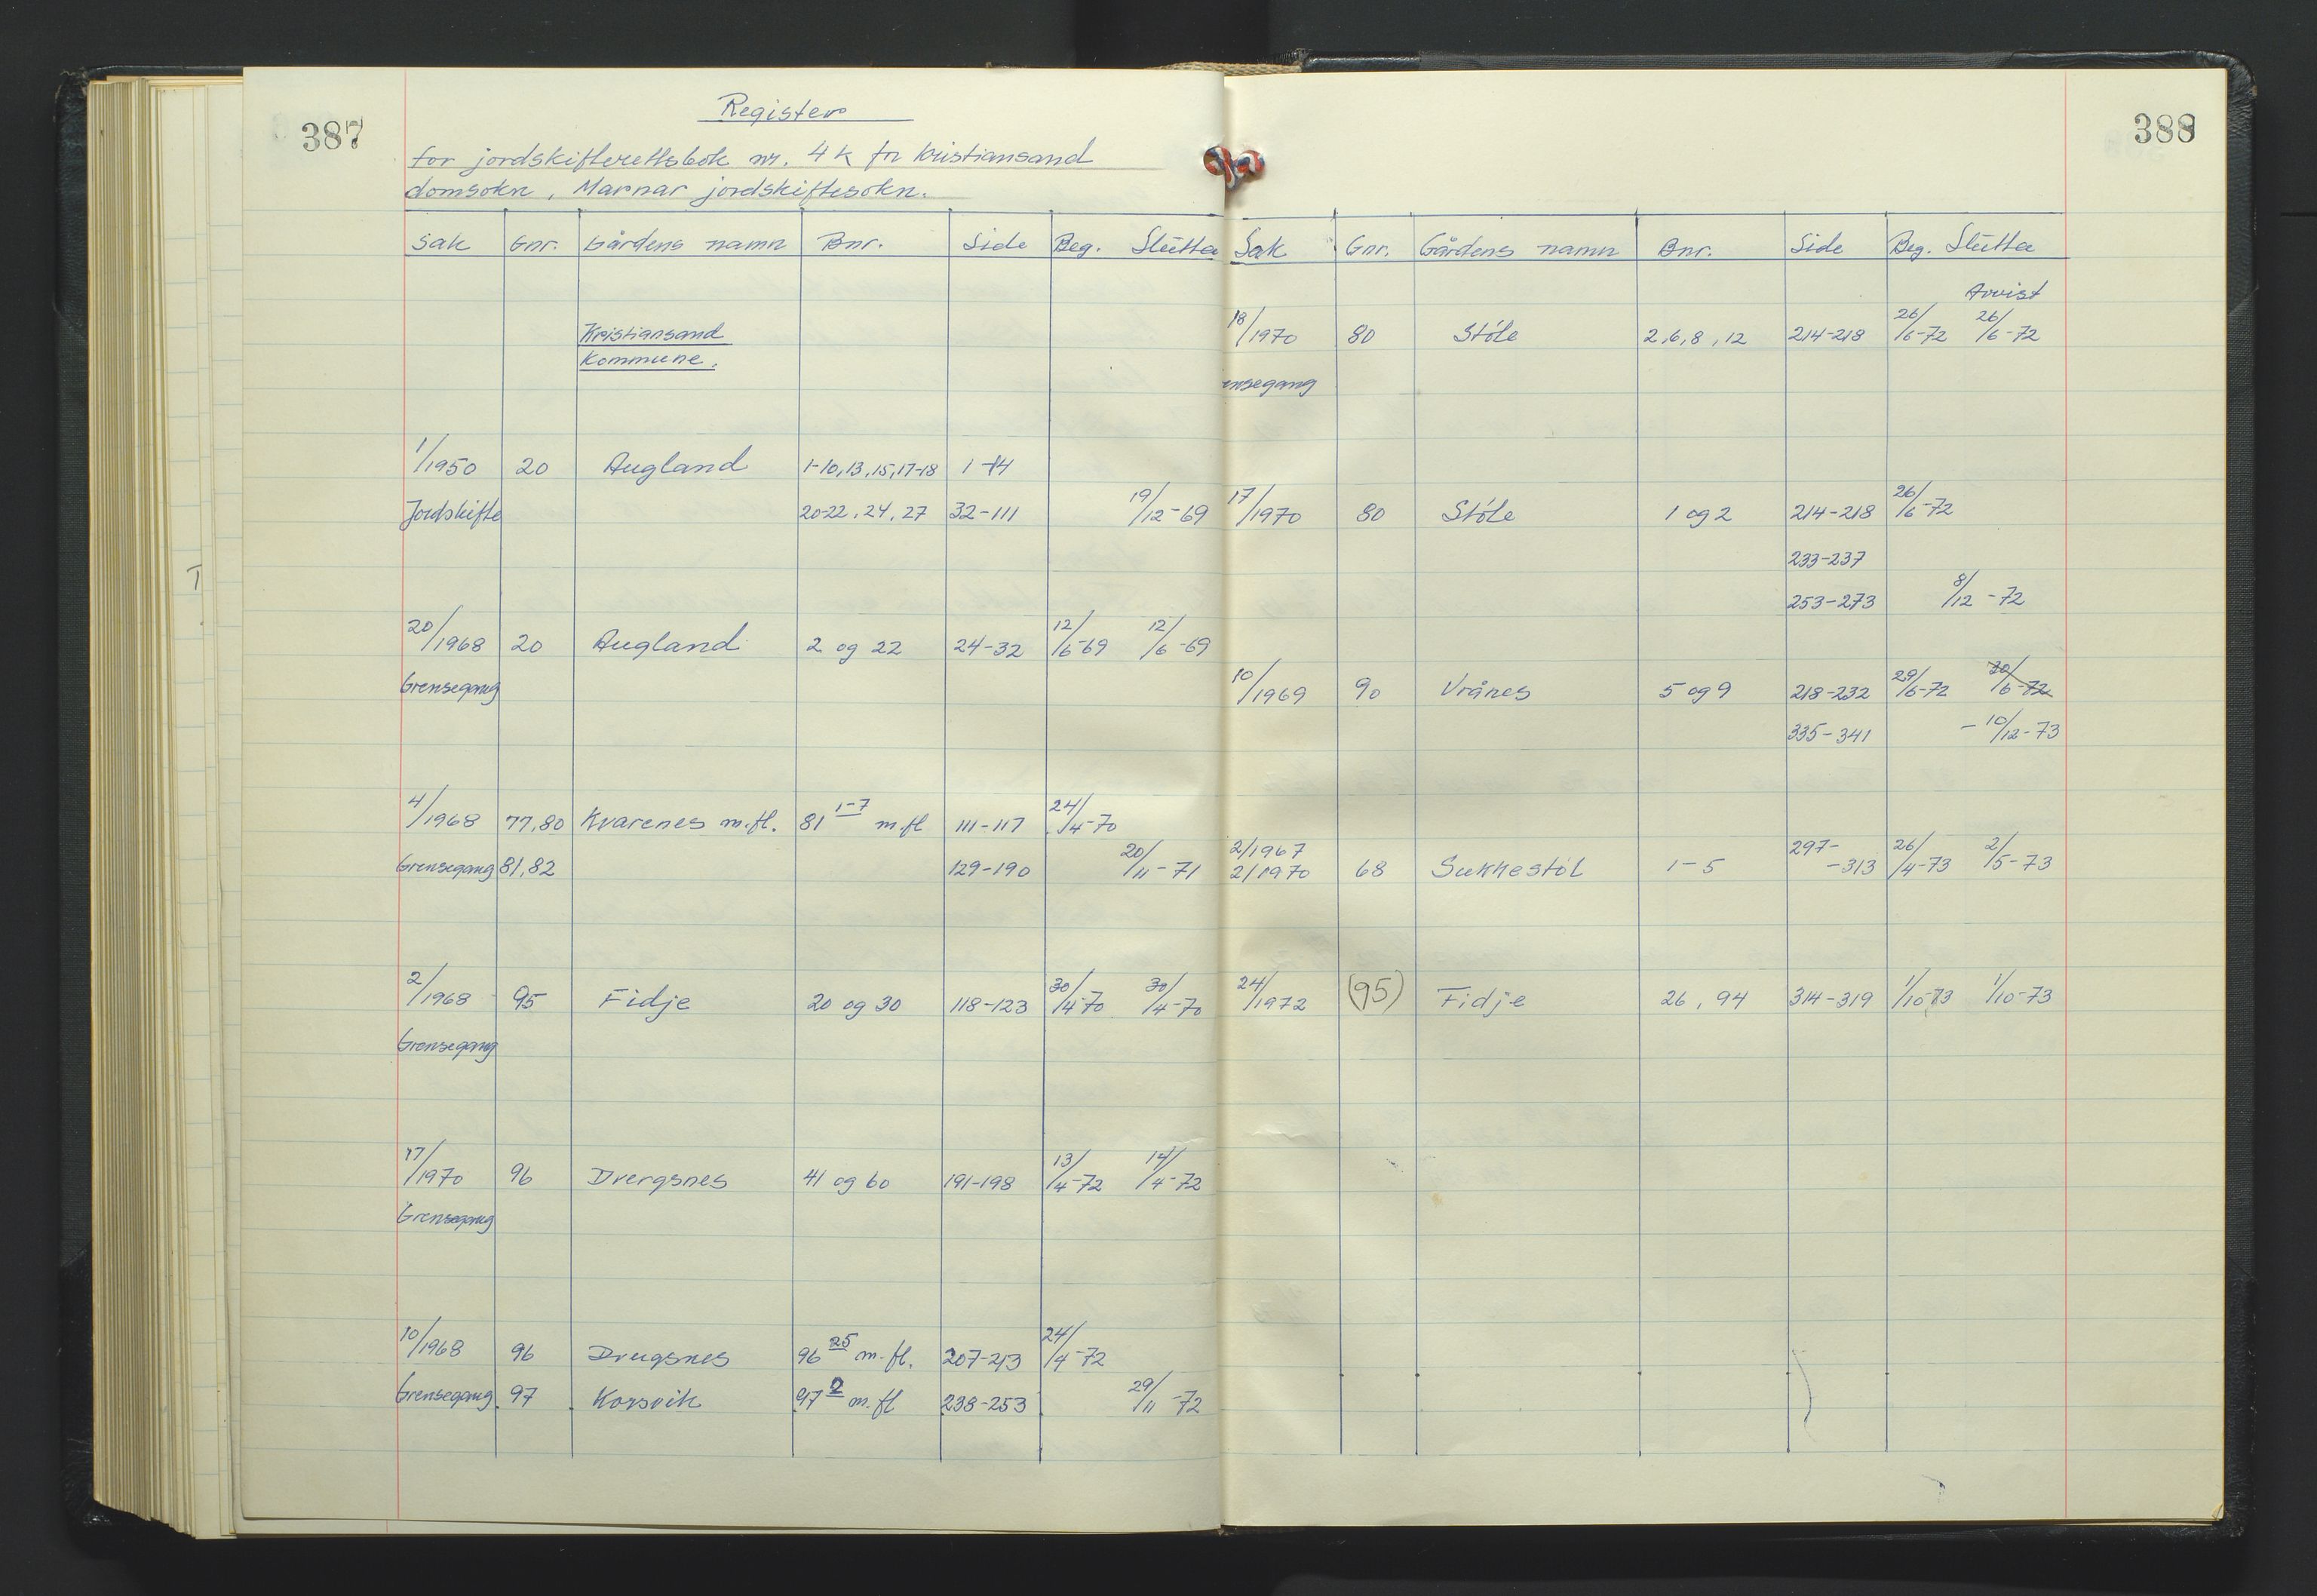 387
Register
for jordskifterettsbok nr. 4 K for Kristiansand
domsokn, Marnar jordskiftesokn.
Sak Gnr. Gårdens namn Bnr. Side Beg. Slutta
Kristiansand
Kommune.
1/1950 20 Augland 1-10,13,15,17-18 1-14
Jordskifte 20-22, 24, 27 32-111 19/12-69
20/1968 20 Augland 2 og 22 24-32 12/6-69 12/6-69
Grensegang
4/1968 77,80 Kvarenes m.fl. 81 1-7 m.fl 111-117 24/4-70
Grensegang 81,82 129-190 20/11-71
2/1968 95 Fidje 20 og 30 118-123 30/4-70 30/4-70
Grensegang
17/1970 96 Drergsnes 41 og 60 191-198 13/4-72 14/4-72
Grensegang
10/1968 96 Drugsnes 96 25 m.fl. 207-213 24/4-72
Grensegang 97 Korsvik 97 2 m.fl 238-253 29/11-72
388
Sak Gnr. Gårdens namn Bnr. Side Beg. Slutta
Avvist
18/1970 80 Støle 2,6,8,12 214-218 26/6-72 26/6-72
ensegang
17/1970 80 Støle 1 og 2 214-218 26/6-72
233-237
253-273 8/12-72
10/1969 90 Vrånes 5 og 9 218-232 29/6-72 30/6-72
335-341 -10/12-73
2/1967 297- 26/4-73 2/5-73
2/1970 68 Sukkestøl 1-5 -313
24/1972 (95) Fidje 26, 94 314-319 1/10-73 1/10-73